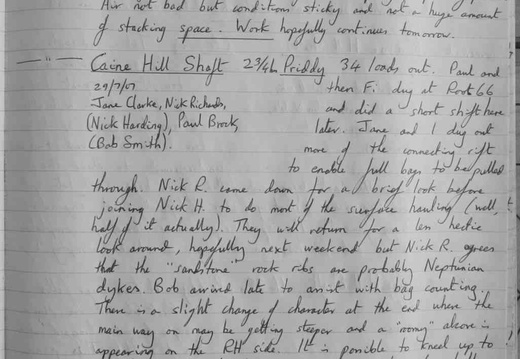 Air not bad but conditions sticky and not a huge amount
of stacking space. Work hopefully continues tomorrow.
Caine Hill Shaft 2¾h Priddy 34 loads out. Paul and
29/7/07 then Fi dug at Root 66
Jane Clarke, Nick Richards, and did a short shift here
(Nick Harding), Paul Brock, later. Jane and I dug out
(Bob Smith). more of the connecting rift
to enable full bags to be pulled
through. Nick R. came down for a brief look before
joining Nick H. to do most of the surface hauling (well,
half of it actually). They will return for a less hectic
look around, hopefully next weekend but Nick R. agrees
that the "sandstone" rock ribs are probably Neptunian
dykes. Bob arrived late to assist with bag counting.
There is a slight change of character at the end where the
main way on may be getting steeper and a "roomy" alcove is
appearing on the RH side. It is possible to kneel up to